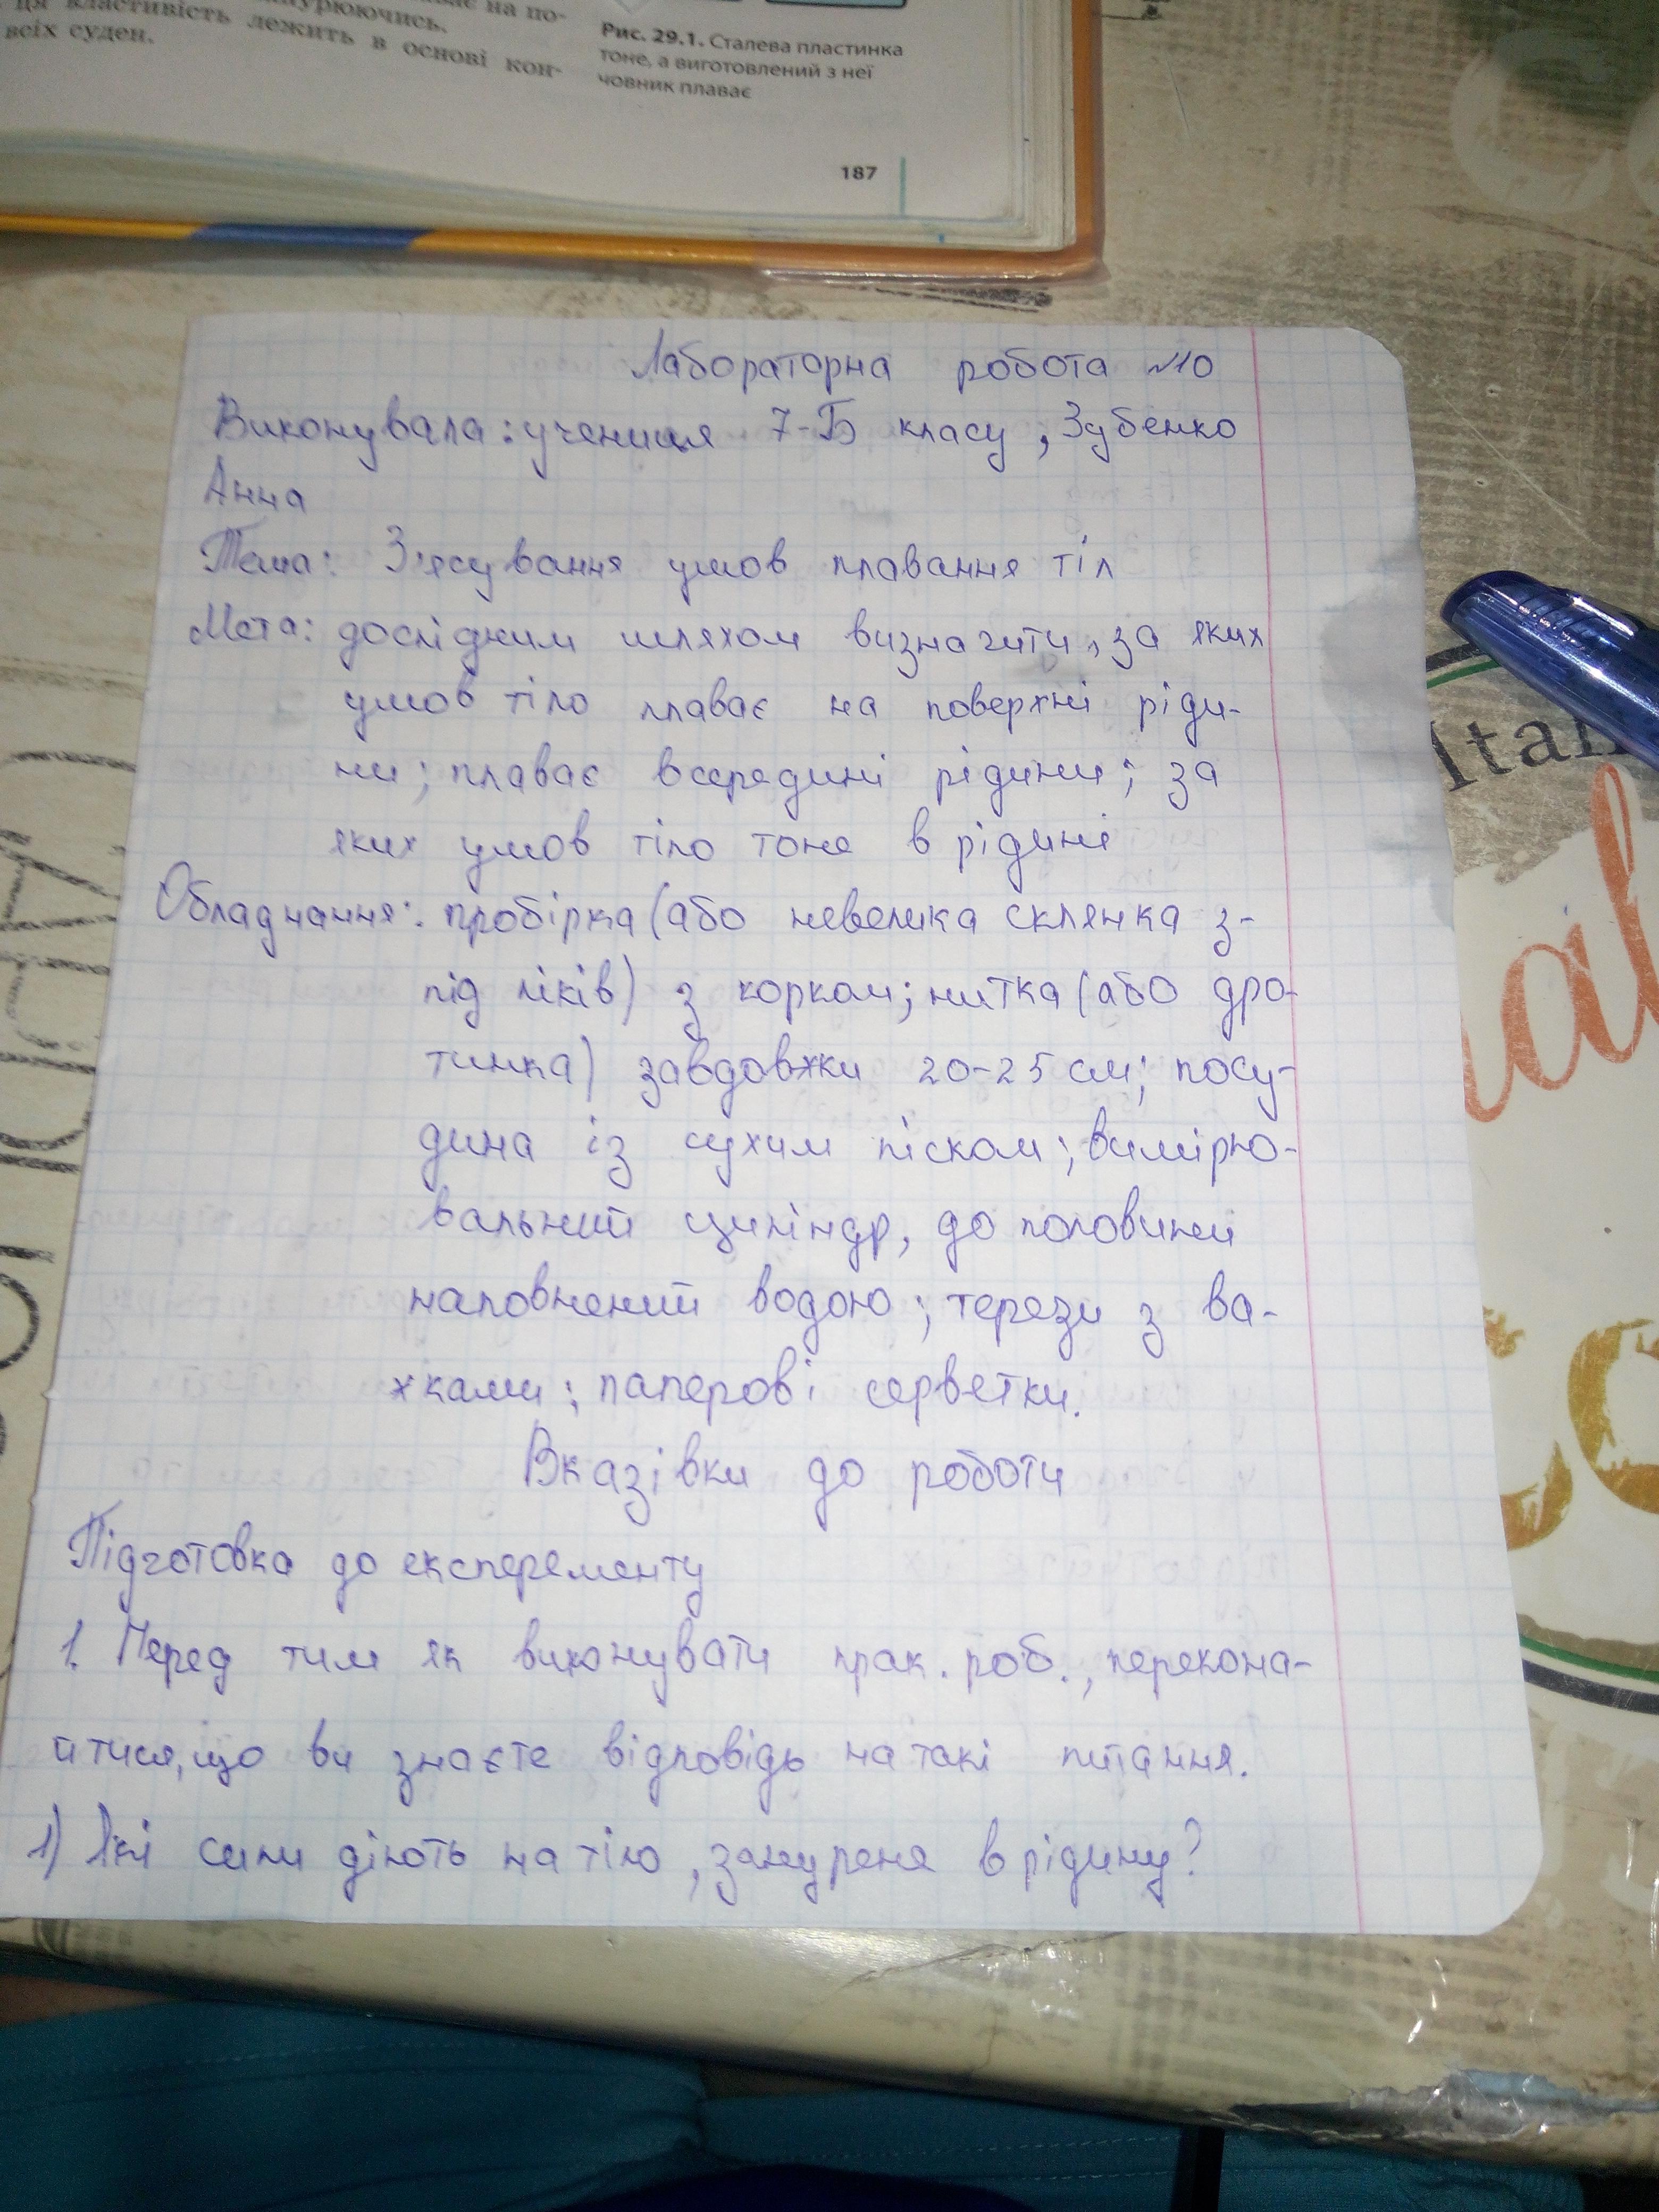 на по-
ця властивість лежить в основі кон-
всіх суден.
Рис. 29.1. Сталева пластинка
тоне, а виготовлений з неї
човник плаває
187
Лабораторна робота №10
Виконувала: учениця 7-Б класу, Зубенко
Анна
Тема: З'ясування умов плавання тіл
Мета: дослідним шляхом визначити, за яких
умов тіло плаває на поверхні ріди-
ни; плаває всередині рідини; за
яких умов тіло тоне в рідині
Обладнання: пробірка (або невелика склянка з-
під ліків) з корком; нитка (або дро-
тинка) завдовжки 20-25 см; посу-
дина із сухим піском; вимірю-
вальний циліндр, до половини
наповнений водою; терези з ва-
жками; паперові серветки.
Вказівки до роботи
Підготовка до експеременту
1. Перед тим як виконувати прак. роб., перекона-
йтися, що ви знаєте відповідь на такі питання.
1) Які сили діють на тіло, занурене в рідину?
Ital